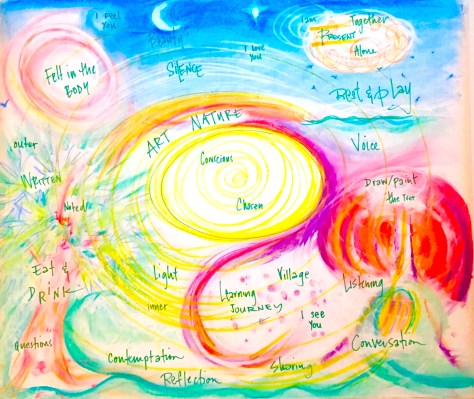 I feel
you
I am
Together
PRESENT
Alone
BREATH
I love
you
SILENCE
Felt in the
BODY
Rest & play
ART NATURE
outer
Voice
Conscious
WRITTEN
Draw/paint
the Tree
Noted
Chosen
Eat &
DRINK
Light
inner
Village
Learning
JOURNEY
Listening
I see
you
Questions
Contemptation
Sharing
Conversation
Reflection